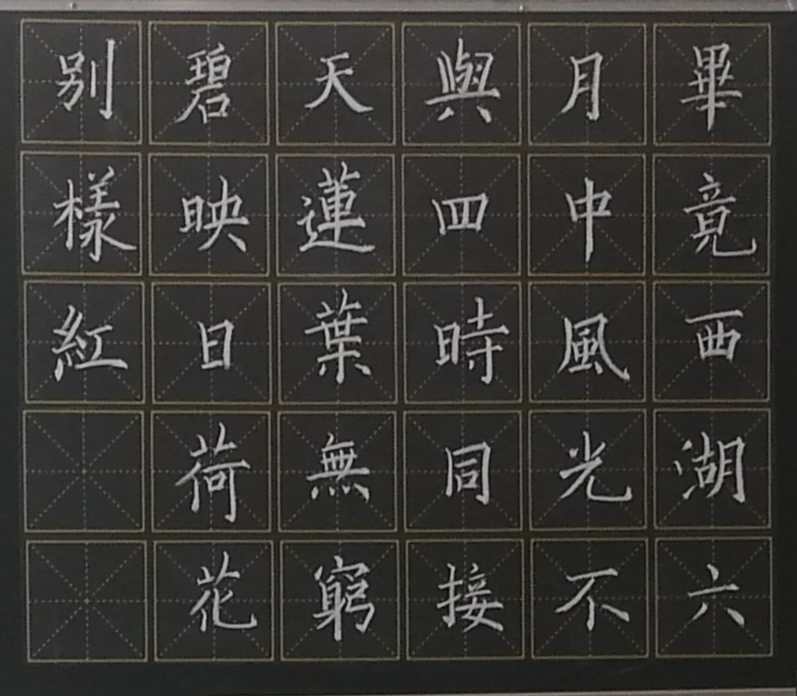 畢竟西湖六
月中風光不
與四時同接
天蓮葉無窮
碧映日荷花
別樣紅